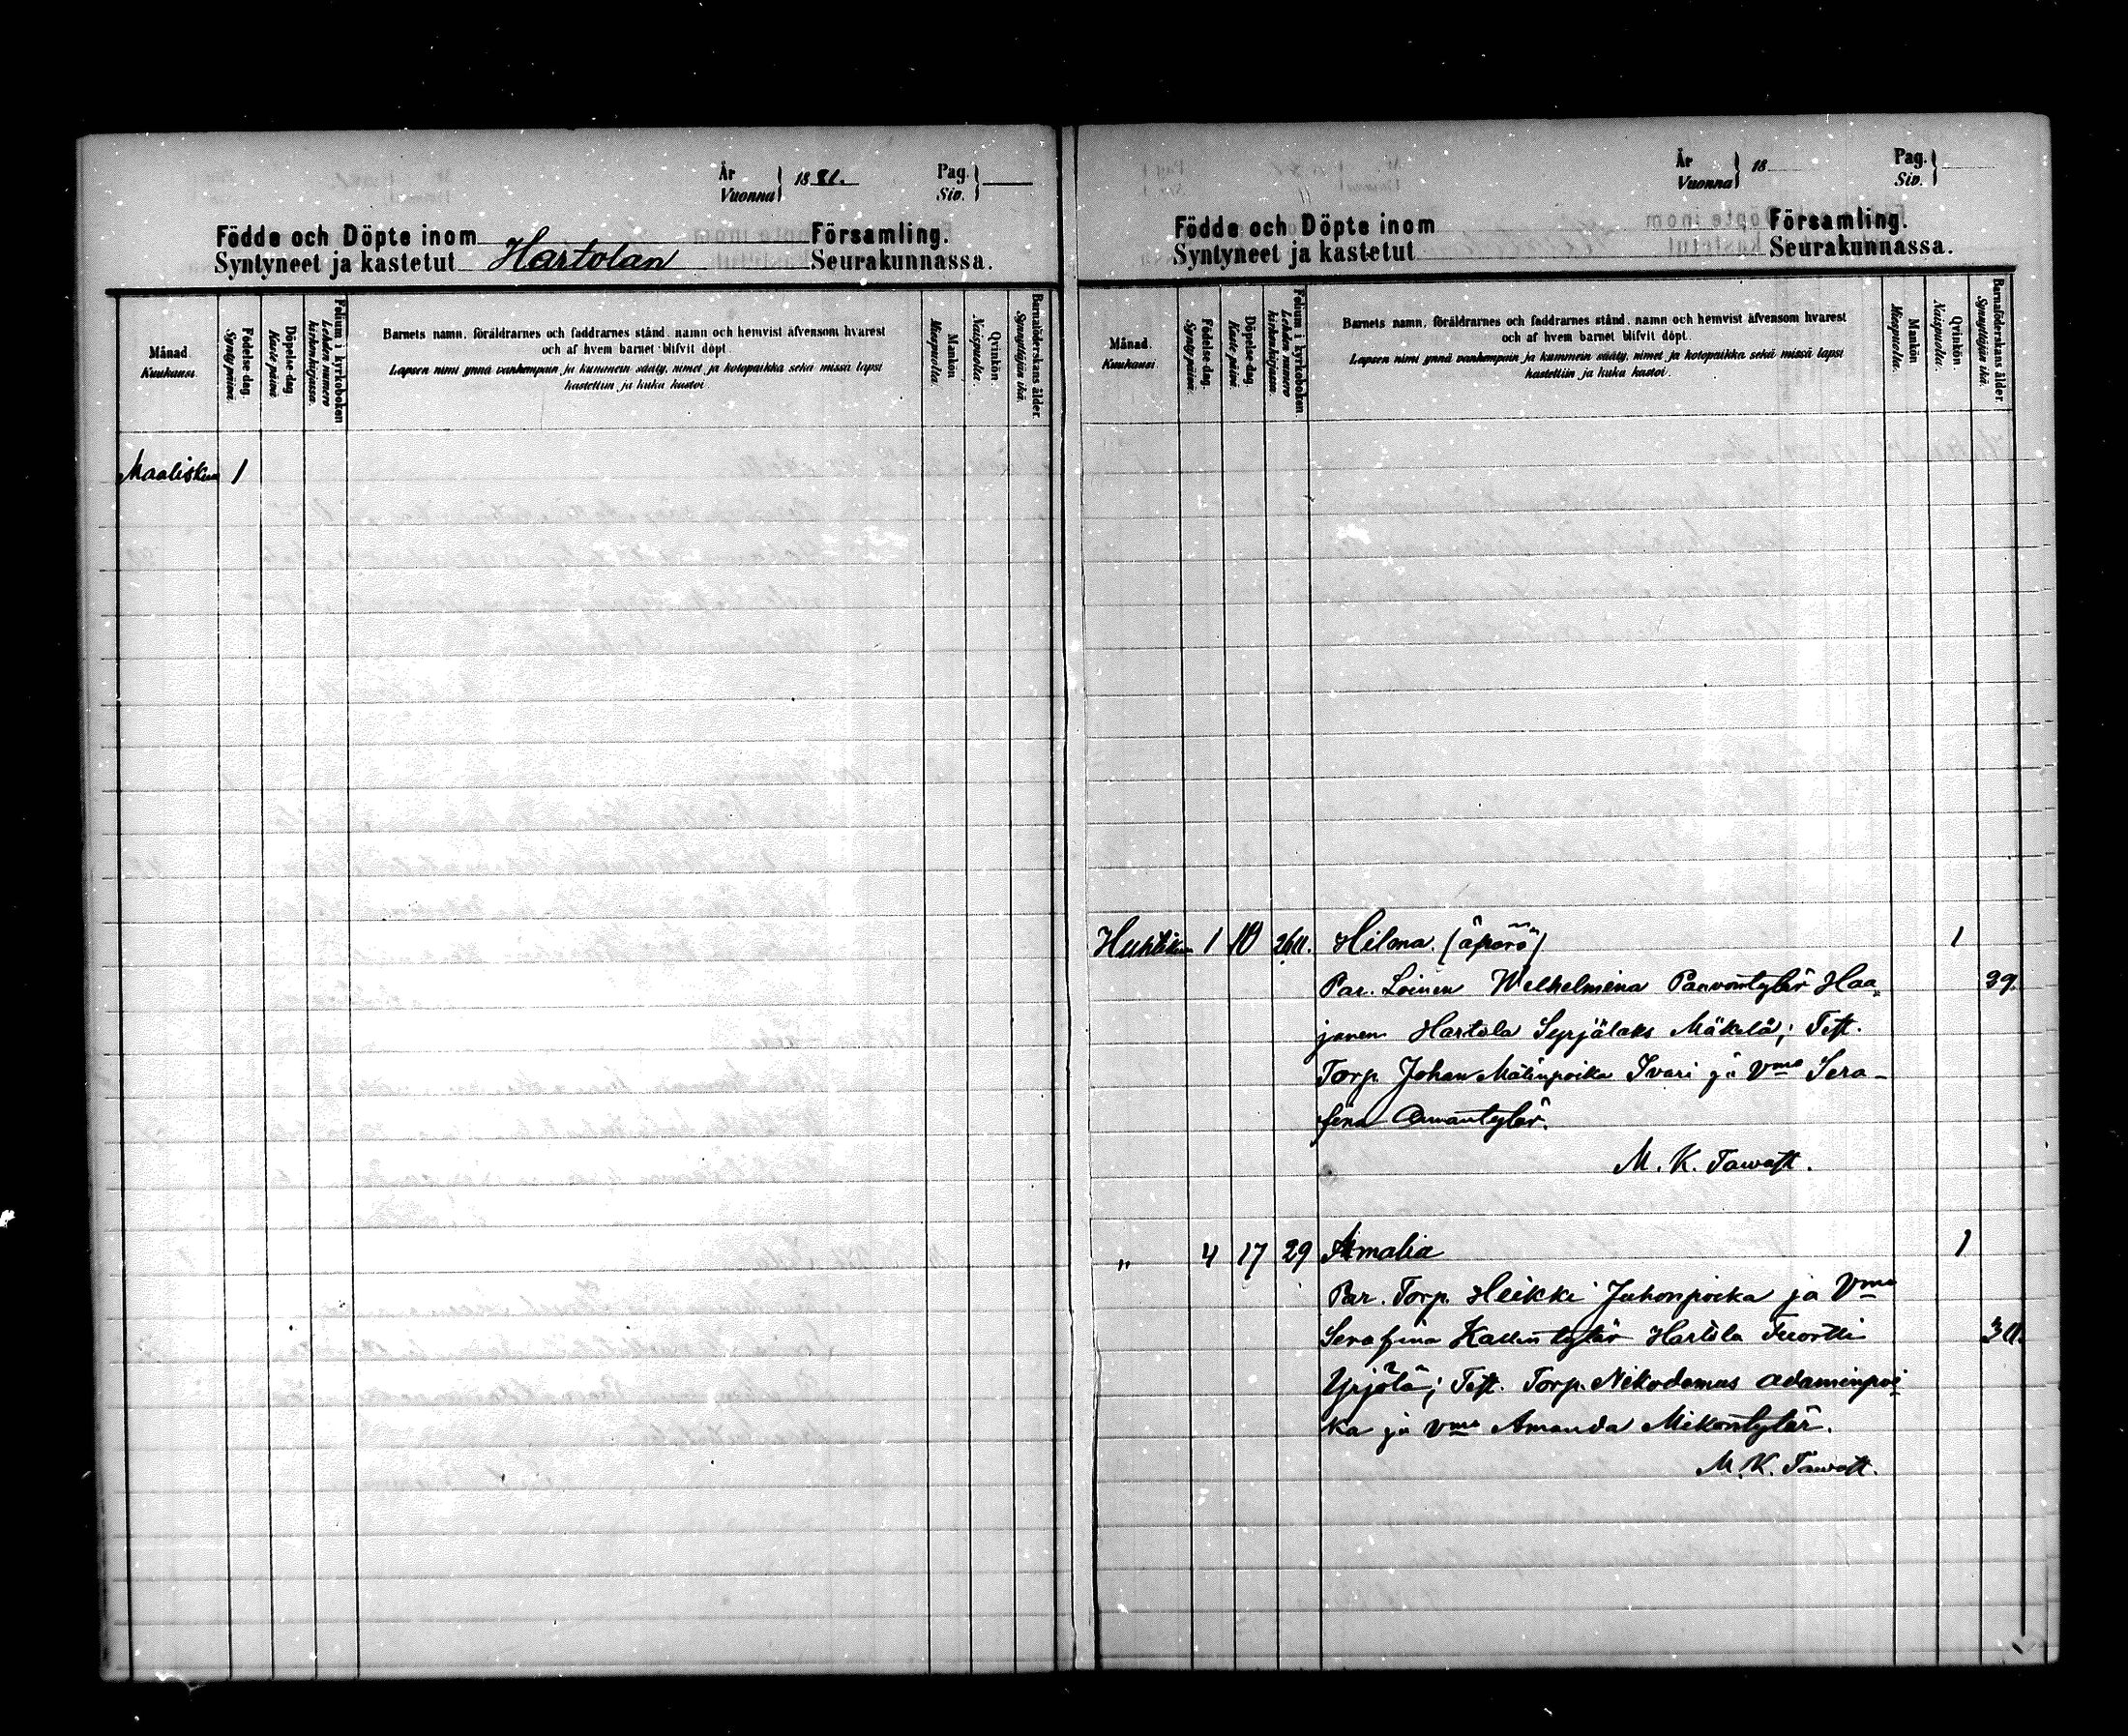 År
Vuonna } 1881.
Pag.
Siv. }
Födde och Döpte inom Församling.
Syntyneet ja kastetut Hartolan Seurakunnassa.
Månad.
Kuukausi.
Födelse-dag.
Synty-päivä.
Döpelse-dag.
Kaste-päivä
Folium i kyrkoboken
Lehden numero kirkonkirjassa.
Barnets namn, föräldrarnes och faddrarnes stånd, namn och hemvist äfvensom hvarest
och af hvem barnet blifvit döpt.
Lapsen nimi ynnä vanhempain ja kummein sääty, nimet ja kotopaikka sekä missä lapsi
kastettiin ja kuka kastoi.
Mankön
Miespuolta.
Qvinkön.
Naispuolta.
Barnaföderskans ålder.
Synnyttäjän ikä.
Maaliskuu 1
År
Vuonna } 18
Pag.
Siv. }
Födde och Döpte inom Församling.
Syntyneet ja kastetut Seurakunnassa.
Månad.
Kuukausi.
Födelse-dag.
Synty-päivä.
Döpelse-dag.
Kaste-päivä
Folium i kyrkoboken.
Lehden numero kirkonkirjassa.
Barnets namn, föräldrarnes och faddrarnes stånd, namn och hemvist äfvensom hvarest
och af hvem barnet blifvit döpt.
Lapsen nimi ynnä vanhempain ja kummein sääty, nimet ja kotopaikka sekä missä lapsi
kastettiin ja kuka kastoi.
Mankön
Miespuolta.
Qvinkön.
Naispuolta.
Barnaföderskans ålder.
Synnyttäjän ikä.
Huhtikuu 1 10 Hilma. (äpärä) 1
Par. Loinen Wilhelmina Paavontytär Haa- 39.
janen Hartola Syrjälaks Mäkelä; Test.
Torp. Johan Matinpoika Ivari ja Vmo Sera-
fina
M. K. Tawast.
" 4 17 29 Amalia 1
Par. Torp. Heikki Juhonpoika ja Vmo
Serafina Kallentytär Hartola
Yrjölä; Test. Torp. Nikodemus Adaminpoi-
ka ja Vmo Amanda Mikontytär.
M. K. Tawast.